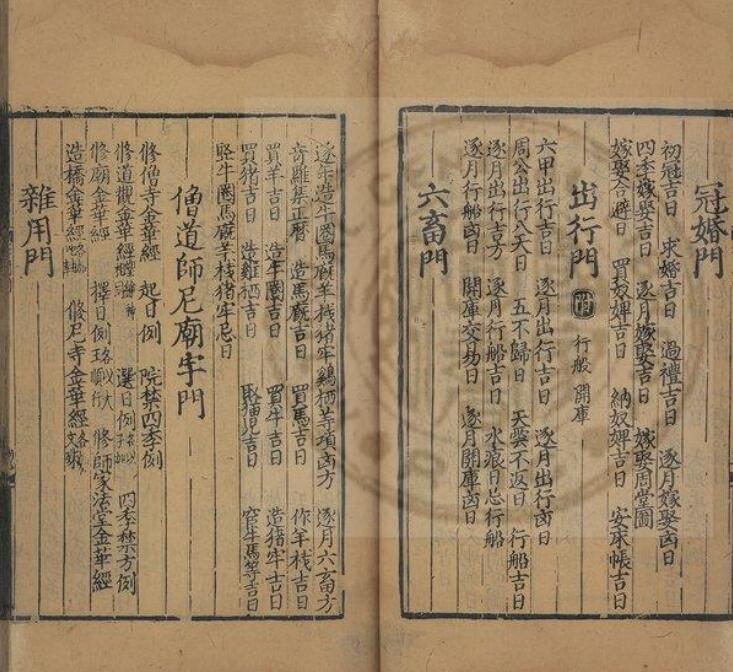 冠婚門
初冠吉日 求婚吉日 過禮吉日 逐月嫁娶凶日
四季嫁娶吉日 逐月嫁娶吉日 嫁娶周堂圖
嫁娶合避日 買奴婢吉日 納奴婢吉日 安床帳吉日
出行門 附 行船 開庫
六甲出行吉日 逐月出行吉日 逐月出行凶日
周公出行八天日 五不歸日 天雲不返日 行船吉日
逐月出行吉方 逐月行船吉日 水痕日忌行船
逐月行船凶日 開庫交易日 逐月開庫凶日
六畜門
逐年造牛圈馬廐羊棧猪牢鷄栖等項凶方 逐月六畜方
奇羅集正曆 造馬廐吉日 買馬吉日 作羊棧吉日
買羊吉日 造牛圈吉日 買牛吉日 造猪牢吉日
買猪吉日 造雞栖吉日 吉日 穿牛馬等吉日
牛圈馬廐羊棧猪牢忌日
僧道師尼廟宇門
修僧寺金華經 起日例 院禁四季例
修道觀金華經 選日例 四季禁方例
修廟金華經 擇日例 修師家法堂金華經
造橋金華經 修尼寺金華經
雜用門